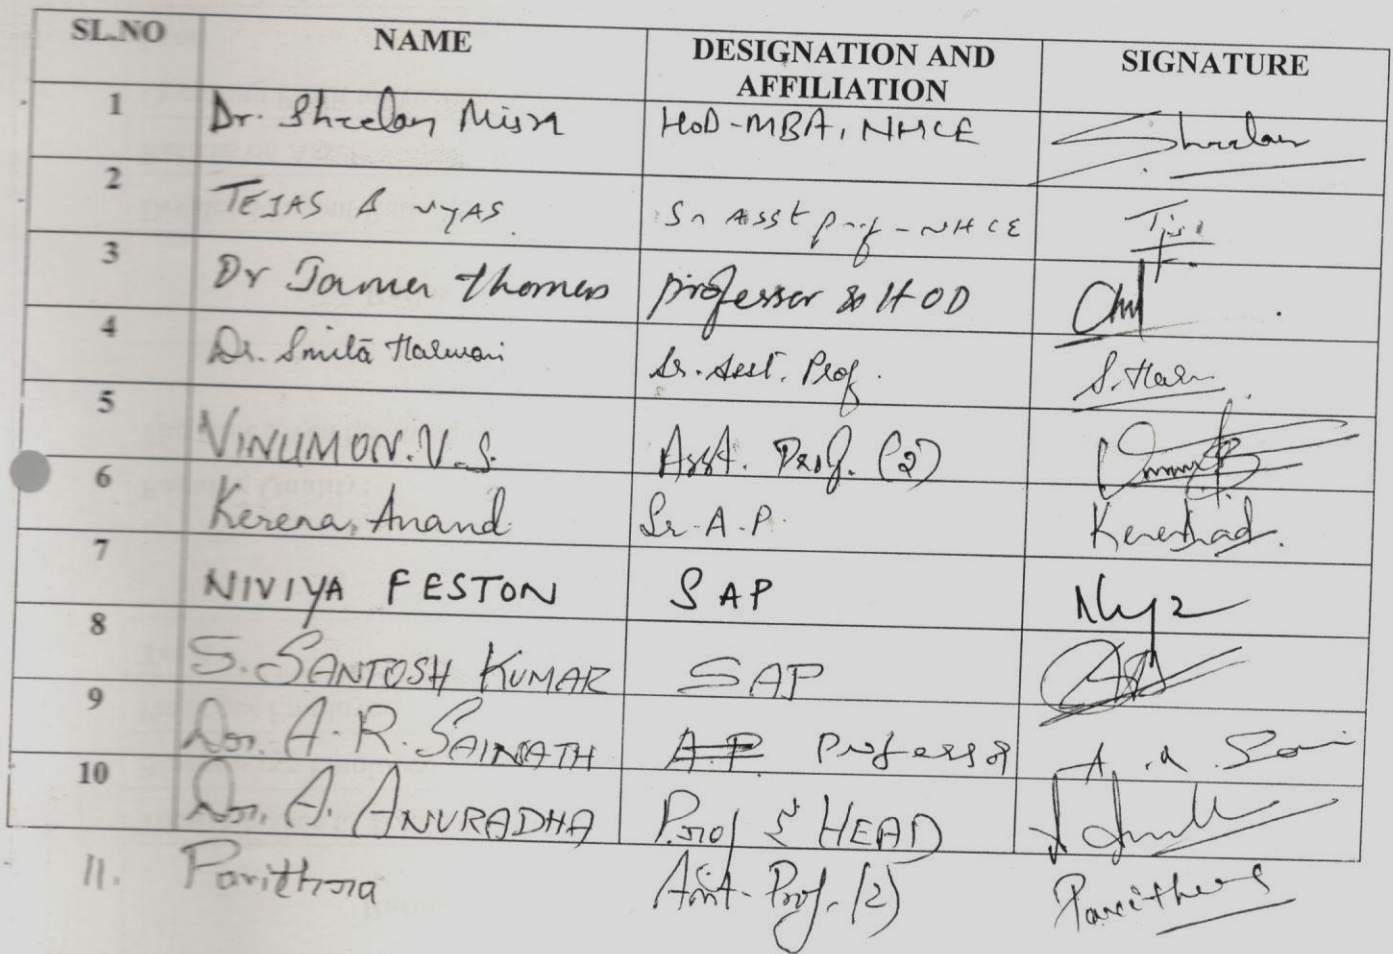 SL.NO NAME DESIGNATION AND AFFILIATION SIGNATURE
1 Dr. Sheelan Misra HoD-MBA, NHCE Sheelan
2 TEJAS B VYAS Sr Asst prof - NHCE
3 Dr James Thomas professor & HOD
4 Dr. Smita Harwani Sr. Asst. Prof. S. Har
5 VINUMON.V.S. Asst. Prof. (2)
6 Kerena Anand Sr. A.P.
7 NIVIYA FESTON SAP
8 S. SANTOSH KUMAR SAP
9 Dr. A.R. SAINATH A.P. Professor
10 Dr. A. ANURADHA Prof & HEAD
11. Pavithra Asst. Prof. (2) Pavithra